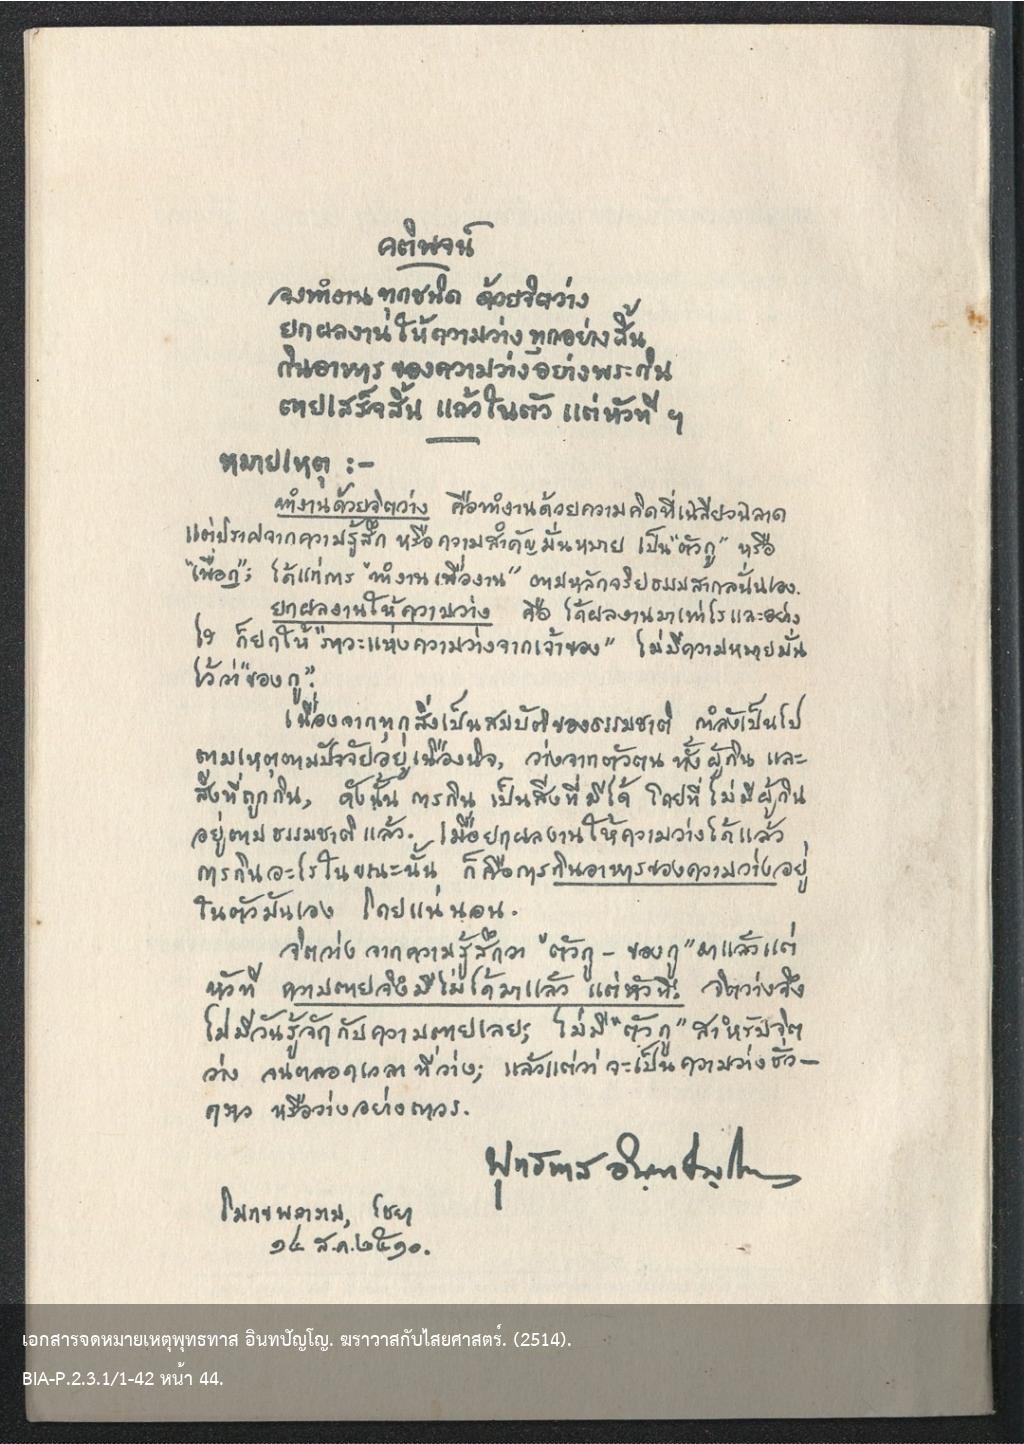 คติพจน์
จงทำงาน ทุกชนิด ด้วยจิตว่าง
ยกผลงานให้ความว่าง ทุกอย่างสิ้น
กินอาหาร ของความว่าง อย่างพระกิน
ตายเสร็จสิ้น แล้วในตัว แต่หัวที ฯ
หมายเหตุ :-
ทำงานด้วยจิตว่าง คือทำงานด้วยความคิดที่เฉลียวฉลาด
แต่ปราศจากความรู้สึก หรือความสำคัญมั่นหมาย เป็น"ตัวกู" หรือ
"เพื่อกู"; ได้แก่การ "ทำงานเพื่องาน" ตามหลักจริยธรรมสากลนั่นเอง.
ยกผลงานให้ความว่าง คือ ได้ผลงานมาเท่าไรและอย่าง
ไร ก็ยกให้ "ภาวะแห่งความว่างจากเจ้าของ" ไม่มีความหมายมั่น
ไว้ว่า"ของกู".
เนื่องจากทุกสิ่งเป็นสมบัติของธรรมชาติ กำลังเป็นไป
ตามเหตุตามปัจจัยอยู่เนืองนิจ, ว่างจากตัวตน ทั้งผู้กิน และ
สิ่งที่ถูกกิน, ดังนั้น การกิน เป็นสิ่งที่มีได้ โดยที่ไม่มีผู้กิน
อยู่ตามธรรมชาติแล้ว. เมื่อยกผลงานให้ความว่างได้แล้ว
การกินอะไรในขณะนั้น ก็คือการกินอาหารของความว่างอยู่
ในตัวมันเอง โดยแน่นอน.
จิตว่าง จากความรู้สึกว่า "ตัวกู – ของกู" มาแล้วแต่
หัวที ความตายจึงมีไม่ได้มาแล้ว แต่หัวที; จิตว่างจึง
ไม่มีวันรู้จักกับความตายเลย; ไม่มี "ตัวกู" สำหรับจิต
ว่าง จนตลอดเวลาที่ว่าง; แล้วแต่ว่าจะเป็นความว่างชั่ว–
คราว หรือว่างอย่างถาวร.
พุทธทาส อินทปัญโญ
โมกขพลาราม, ไชยา
๑๔ ส.ค. ๒๕๑๐.
เอกสารจดหมายเหตุพุทธทาส อินทปัญโญ. ฆราวาสกับไสยศาสตร์. (2514).
BIA-P.2.3.1/1-42 หน้า 44.